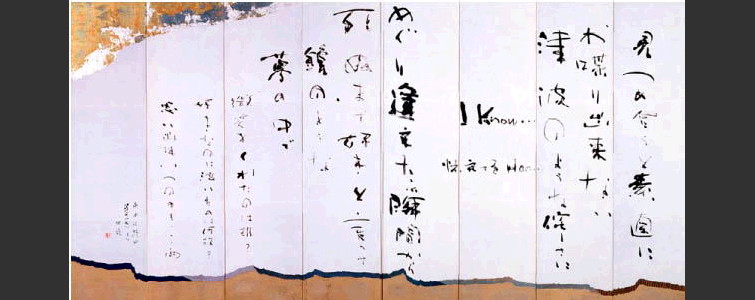 見つめ合うと素直に
お喋り出来ない
津波のような侘しさに
I Know...
怯えてる Hoo...
めぐり逢えた瞬間から
死ぬまで好きと言って
鏡のような
夢の中で
微笑をくれたのは誰?
好きなのに泣いたのは何故?
思い出はいつの日も…雨